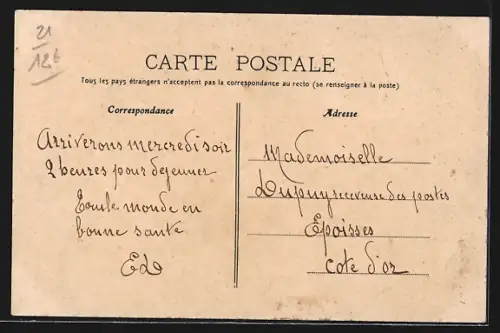 21
126
CARTE POSTALE
Tous les pays étrangers n'acceptent pas la correspondance au recto (se renseigner à la poste)
Correspondance
Arriverons mercredi soir
2 heures pour dejeuner
Tout le monde en
bonne santé
ED
Adresse
Mademoiselle
Dupuy receveuse des postes
Epoisses
Cote d'or